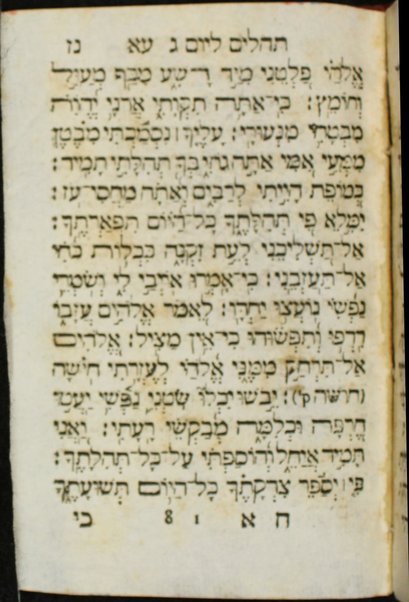 תהלים ליום ג עא נז
אֱלֹהַ֗י פַּ֭לְּטֵנִי מִיַּ֣ד רָשָׁ֑ע מִכַּ֖ף מְעַוֵּ֣ל
וְחוֹמֵֽץ׃ כִּֽי־אַתָּ֥ה תִקְוָתִ֑י אֲדֹנָ֥י יְ֝הֹוִ֗ה
מִבְטַחִ֥י מִנְּעוּרָֽי׃ עָלֶ֤יךָ ׀ נִסְמַ֬כְתִּי מִבֶּ֗טֶן
מִמְּעֵ֣י אִ֭מִּי אַתָּ֣ה גוֹזִ֑י בְּךָ֖ תְהִלָּתִ֣י תָמִֽיד׃
כְּ֭מוֹפֵת הָיִ֣יתִי לְרַבִּ֑ים וְ֝אַתָּ֗ה מַֽחֲסִי־עֹֽז׃
יִמָּ֣לֵא פִ֭י תְּהִלָּתֶ֑ךָ כׇּל־הַ֝יּ֗וֹם תִּפְאַרְתֶּֽךָ׃
אַֽל־תַּ֭שְׁלִיכֵנִי לְעֵ֣ת זִקְנָ֑ה כִּכְל֥וֹת כֹּ֝חִ֗י
אַֽל־תַּעַזְבֵֽנִי׃ כִּֽי־אָמְר֣וּ אוֹיְבַ֣י לִ֑י וְשֹׁמְרֵ֥י
נַ֝פְשִׁ֗י נוֹעֲצ֥וּ יַחְדָּֽו׃ לֵ֭אמֹר אֱלֹהִ֣ים עֲזָב֑וֹ
רִֽדְפ֥וּ וְ֝תִפְשׂ֗וּהוּ כִּי־אֵ֥ין מַצִּֽיל׃ אֱ֭לֹהִים
אַל־תִּרְחַ֣ק מִמֶּ֑נִּי אֱ֝לֹהַ֗י לְעֶזְרָ֥תִי חֽוּשָׁה
(חושה ק')׃ יֵבֹ֣שׁוּ יִכְלוּ֮ שֹׂטְנֵ֢י נַ֫פְשִׁ֥י יַעֲט֣וּ
חֶ֭רְפָּה וּכְלִמָּ֑ה מְ֝בַקְשֵׁ֗י רָעָתִֽי׃ וַ֭אֲנִי
תָּמִ֣יד אֲיַחֵ֑ל וְ֝הוֹסַפְתִּ֗י עַל־כׇּל־תְּהִלָּתֶֽךָ׃
פִּ֤י ׀ יְסַפֵּ֬ר צִדְקָתֶ֗ךָ כׇּל־הַיּ֥וֹם תְּשׁוּעָתֶ֑ךָ
ח א 1 8 כי